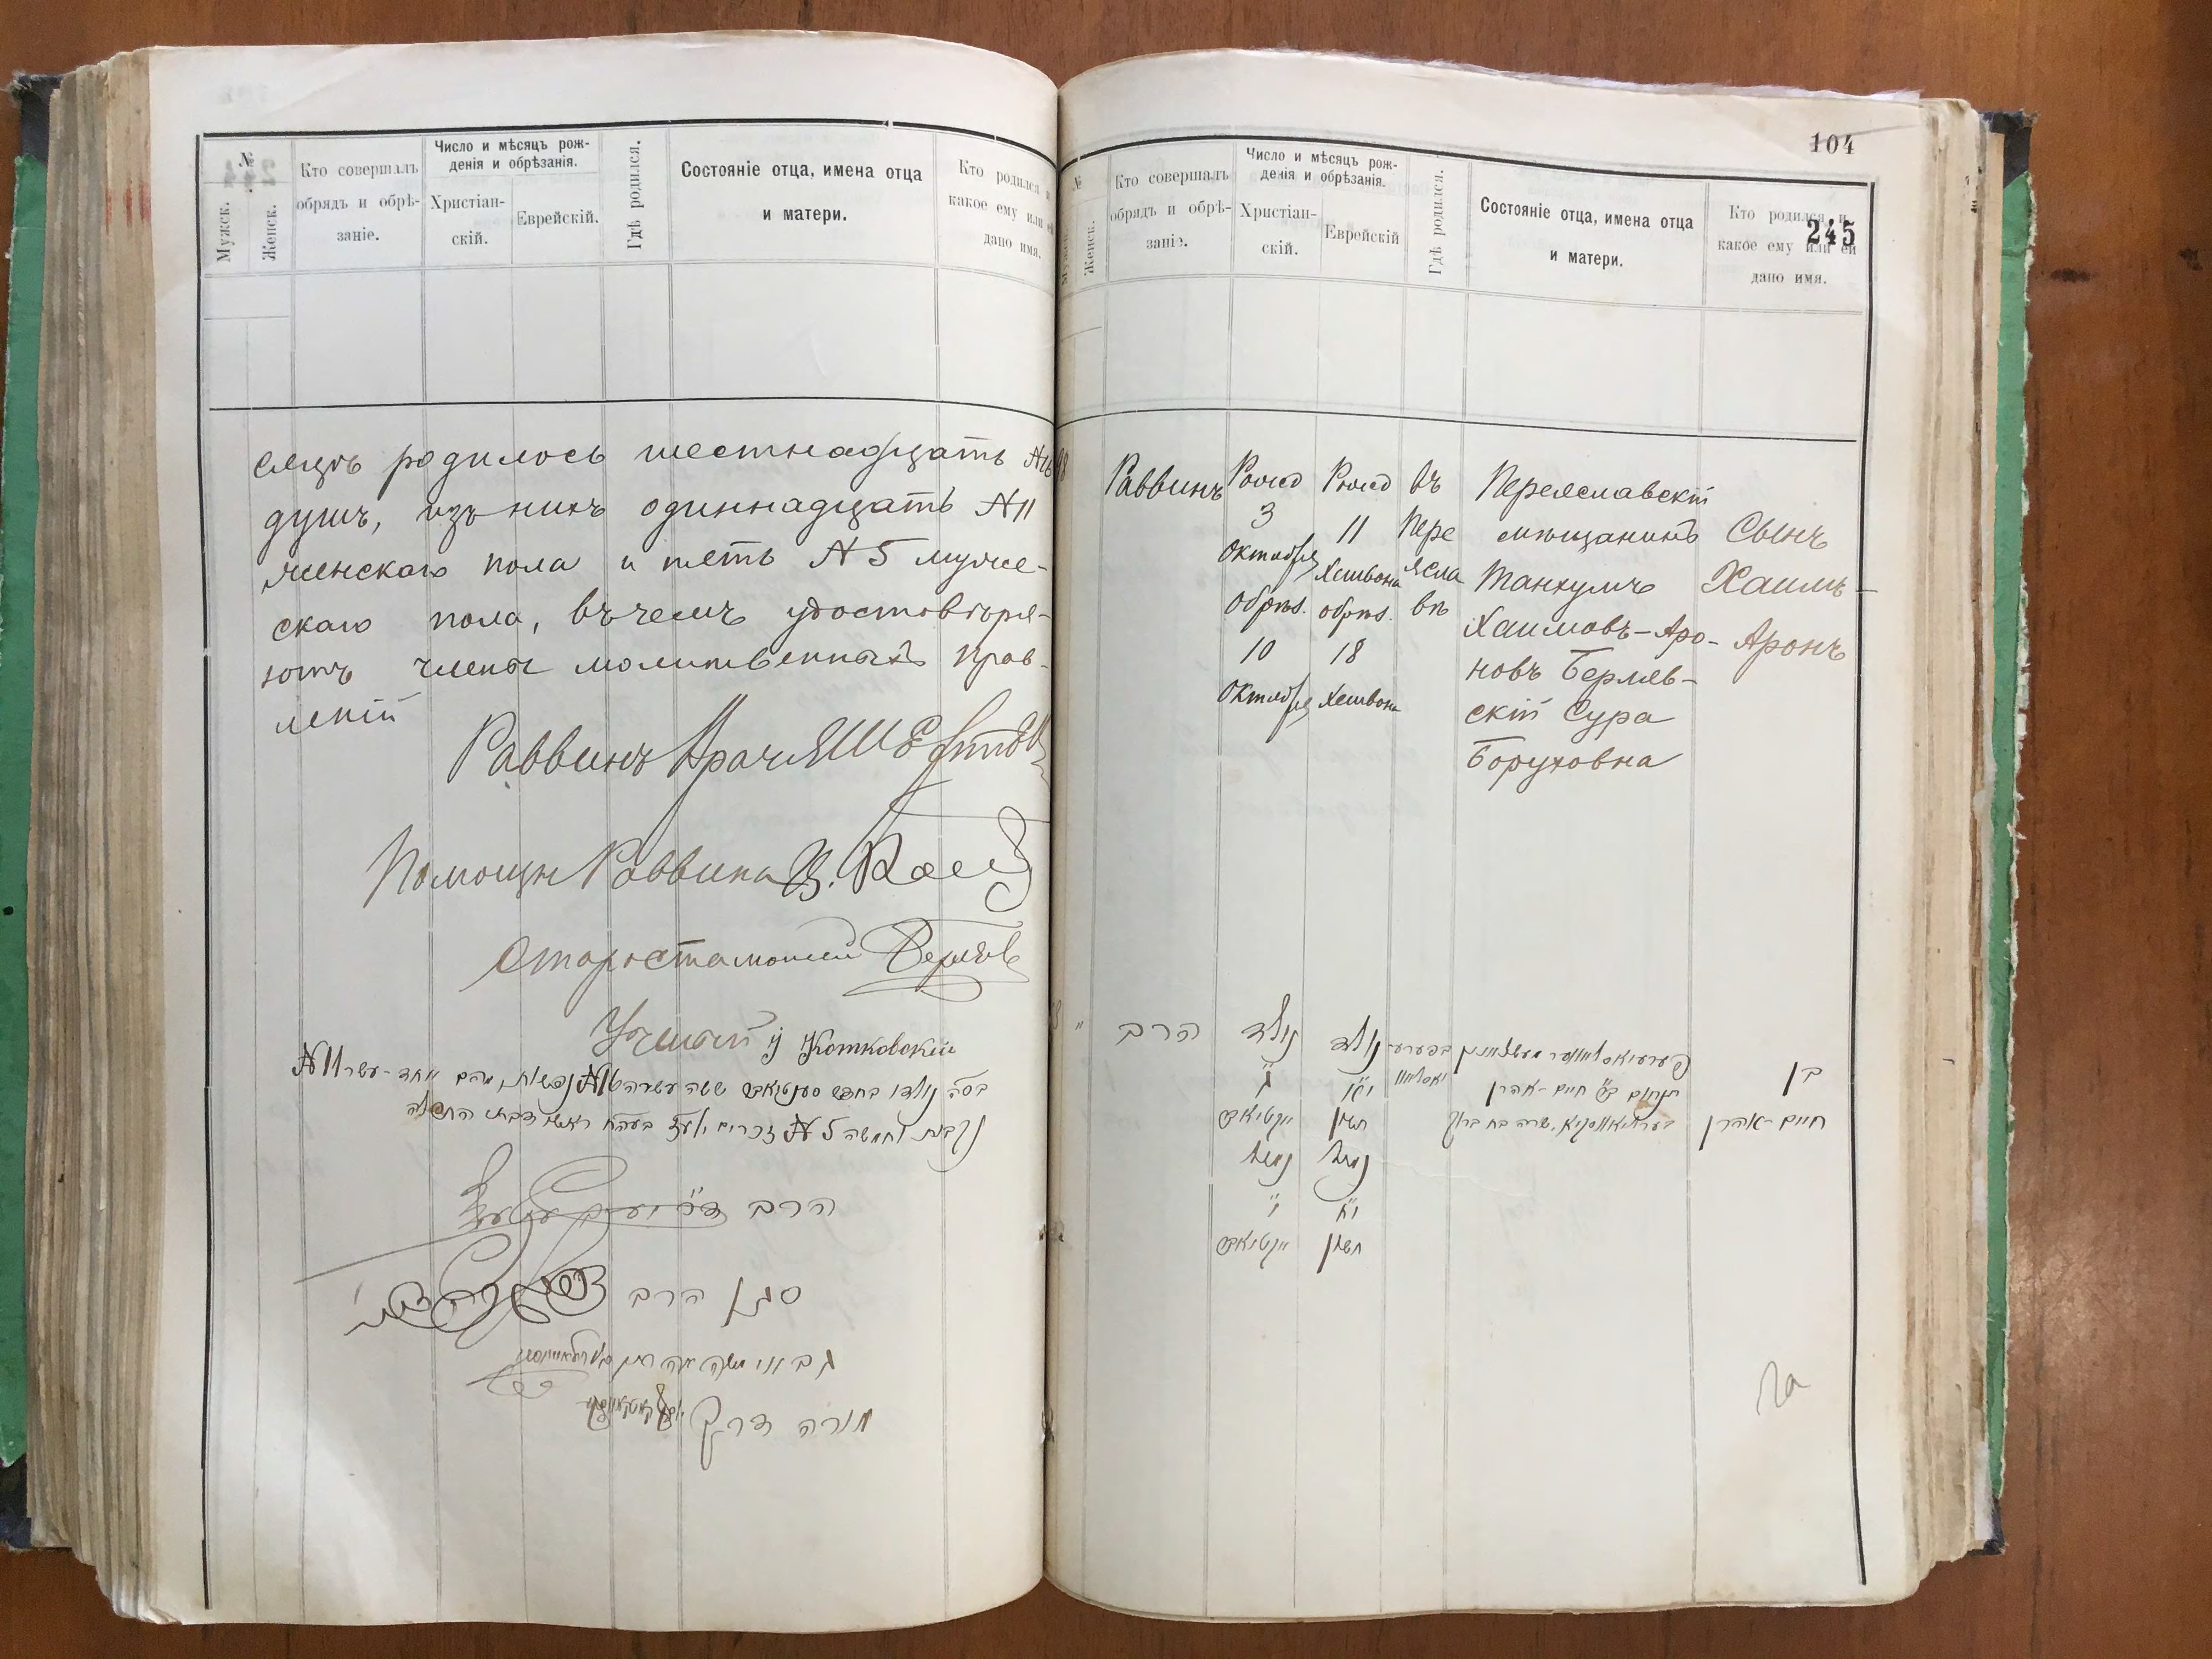 №
Мужск.
Женск.
Кто совершалъ
обрядъ и обрѣ-
заніе.
Число и мѣсяцъ рож-
денія и обрѣзанія.
Христіан-
скій.
Еврейскій.
Гдѣ родился.
Состояніе отца, имена отца
и матери.
Кто родился и
какое ему или ей
дано имя.
сяцъ родилось шестнадцать №16
душъ, изъ нихъ одиннадцать №11
женскаго пола и пять №5 муже-
скаго пола, въ чемъ удостовѣря-
ютъ члены молитвенныхъ прав-
леній
Раввинъ Врачъ
Помощн Раввина
Староста
Ученый Котковскій
№11 נפשות, מהם אחד-עשר №16 בסה נולדו בחדש סענטיאבר ששה עשרה
זכרים №5 נקבות וחמשה
הרב
סגן הרב
גבאי משה
מורה צדק
104
245
№
Мужск.
Женск.
Кто совершалъ
обрядъ и обрѣ-
заніе.
Число и мѣсяцъ рож-
денія и обрѣзанія.
Христіан-
скій.
Еврейскій
Гдѣ родился.
Состояніе отца, имена отца
и матери.
Кто родился и
какое ему или ей
дано имя.
Раввинъ
Рожд
3
Октября
Обрѣз.
10
Октября
Рожд
11
Хешвона
обрѣз.
18
Хешвона
въ
Пере
ясла
вѣ
Переяславскій
мѣщанинъ
Танхумъ
Хаимовъ-Аро-
новъ Берляв-
скій Сура
Боруховна
Сынъ
Хаимъ-
Аронъ
הרב
נולד
ג
אקטיאבר
נמול
י
אקטיאבר
נולד
יא
חשון
נמול
יח
חשון
תנחום בר חיים-אהרן
שרה בת ברוך
בן
חיים-אהרן